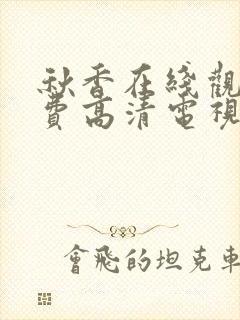 秋香在綫觀
費高清電視
會飛的坦克車